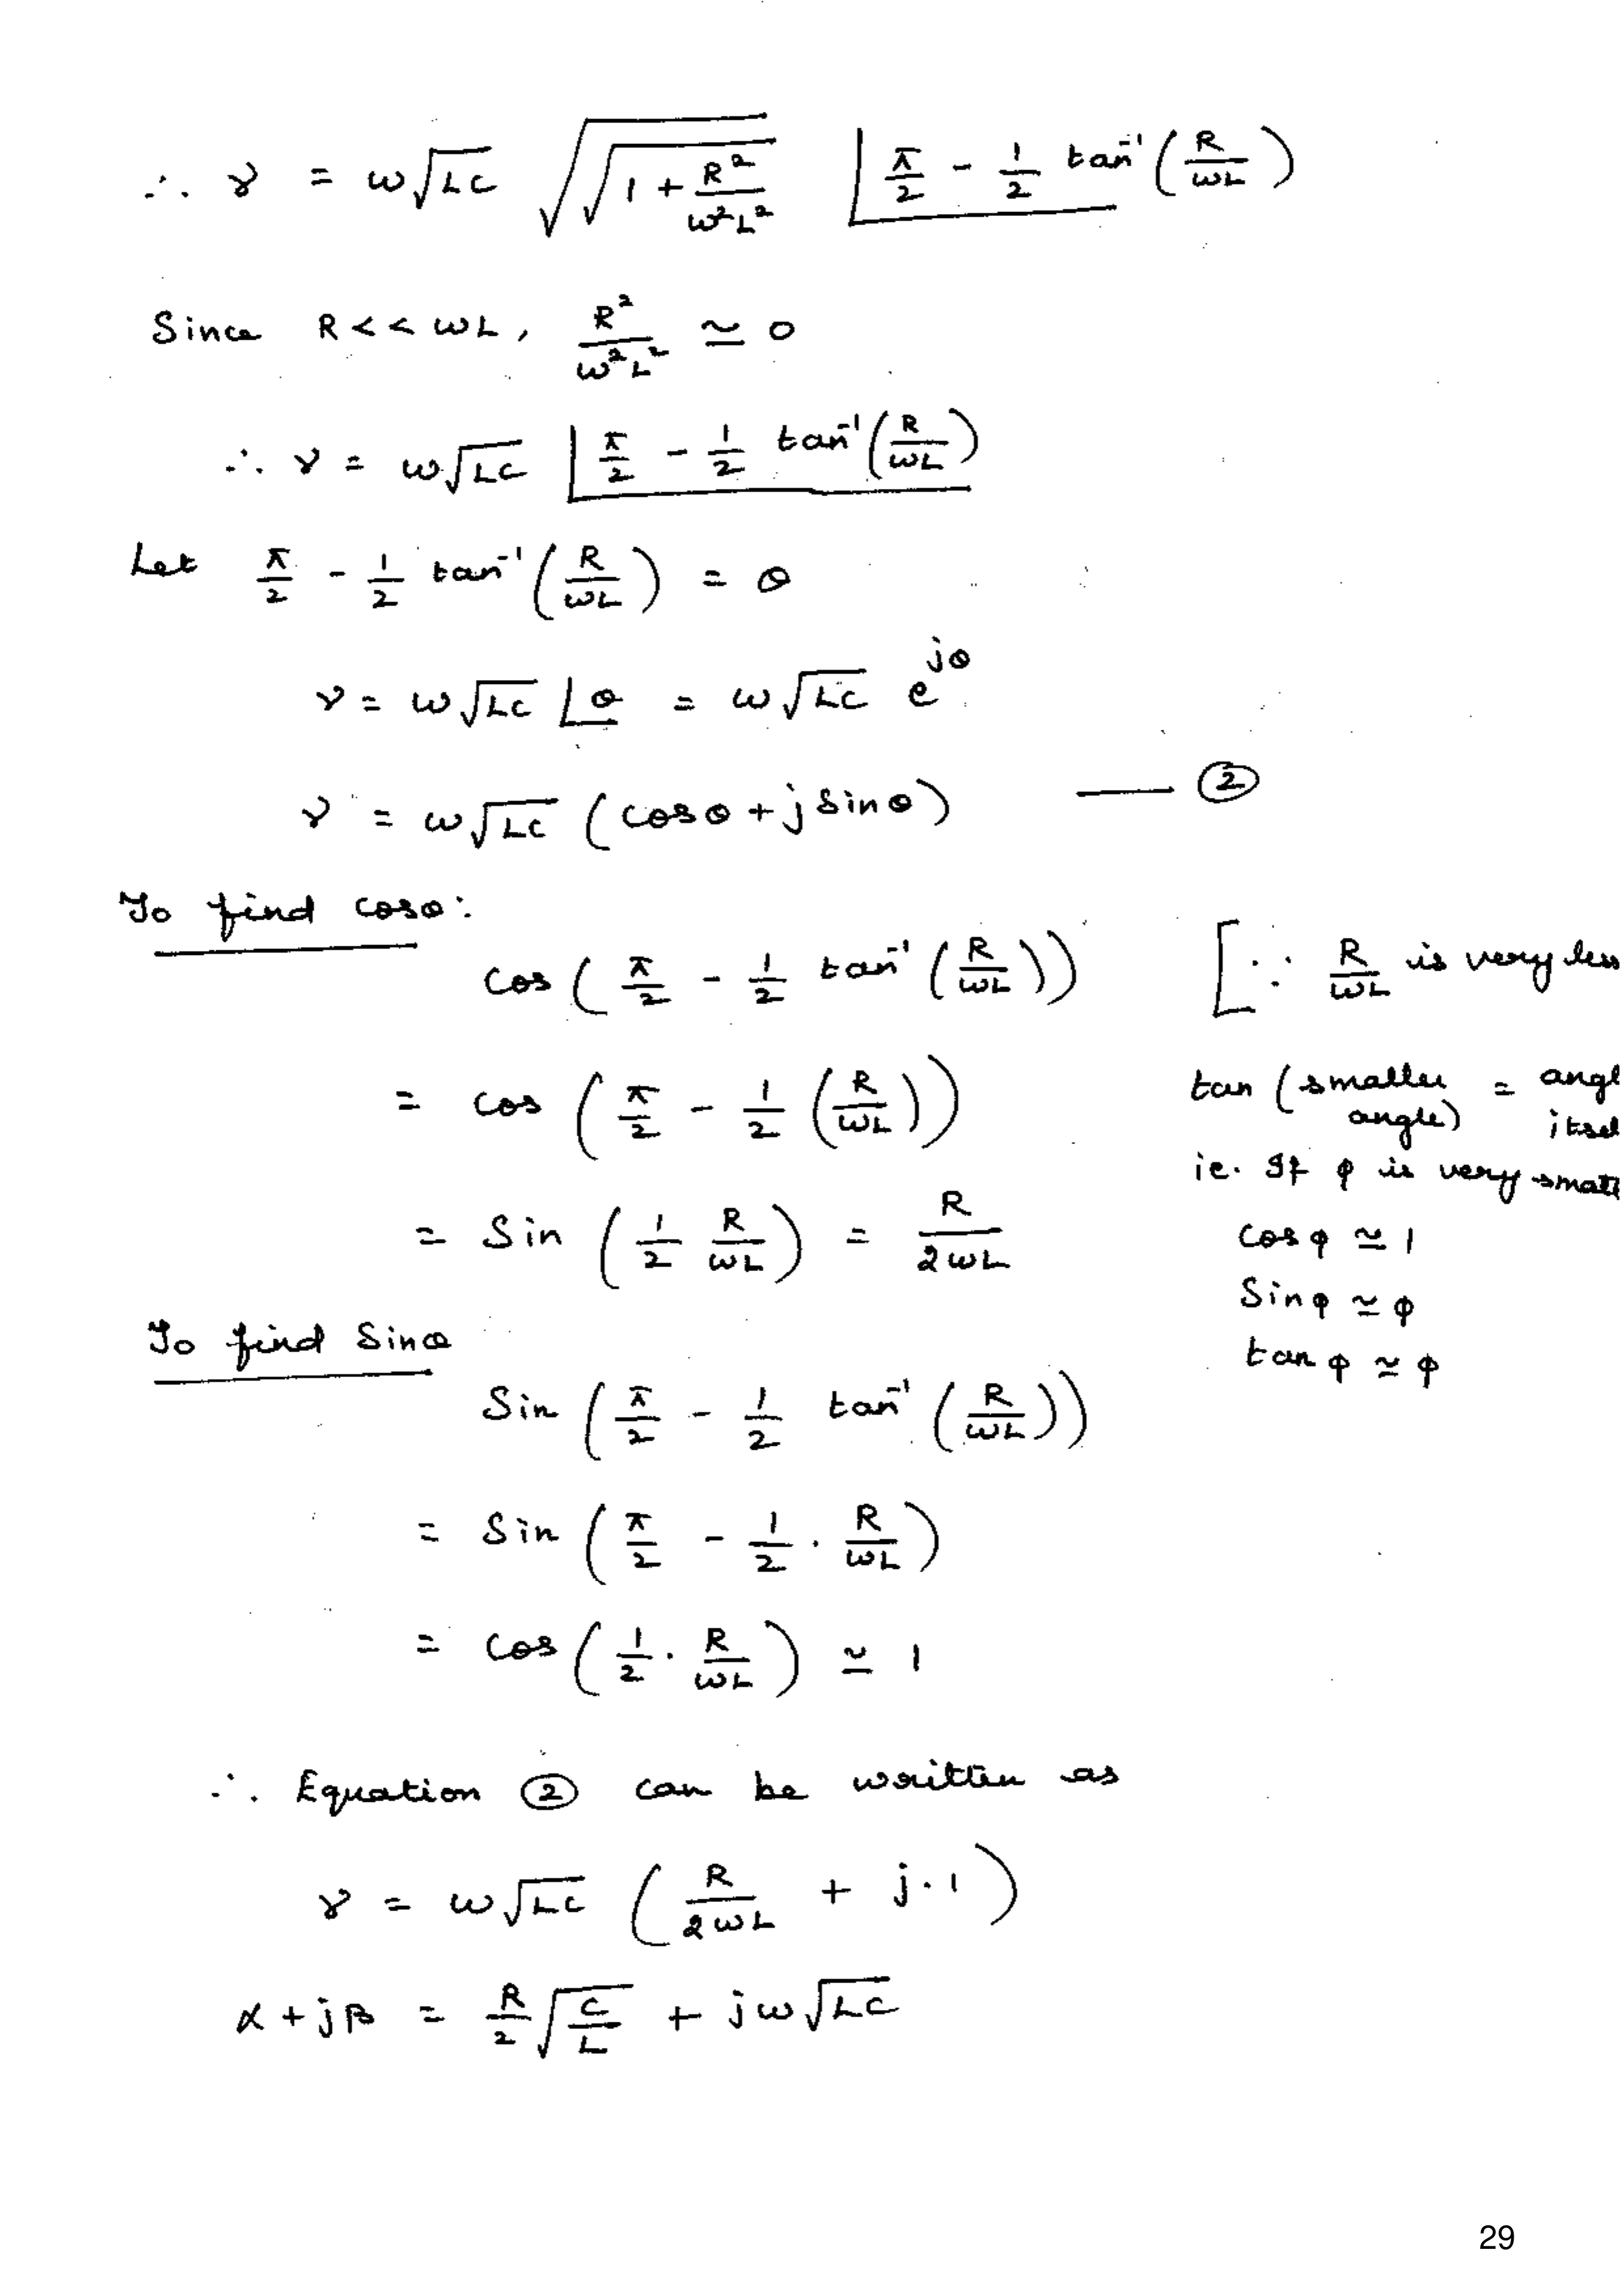 ∴ γ = ω√LC √√(1 + R²/ω²L²) ∠ π/2 - 1/2 tan⁻¹(R/ωL)
Since R << ωL, R²/ω²L² ≃ 0
∴ γ = ω√LC ∠ π/2 - 1/2 tan⁻¹(R/ωL)
Let π/2 - 1/2 tan⁻¹(R/ωL) = θ
γ = ω√LC ∠θ = ω√LC e^jθ
γ = ω√LC (cosθ + j Sinθ) — ②
To find cosθ:
cos(π/2 - 1/2 tan⁻¹(R/ωL)) [∵ R/ωL is very less
= cos(π/2 - 1/2 (R/ωL))
tan (smaller angle) = angl itsel
ie. If φ is very small
= Sin(1/2 R/ωL) = R/2ωL
cosφ ≃ 1
Sinφ ≃ φ
tanφ ≃ φ
To find Sinθ
Sin(π/2 - 1/2 tan⁻¹(R/ωL))
= Sin(π/2 - 1/2 · R/ωL)
= cos(1/2 · R/ωL) ≃ 1
∴ Equation ② can be written as
γ = ω√LC (R/2ωL + j·1)
α + jβ = R/2 √(C/L) + jω√LC
29